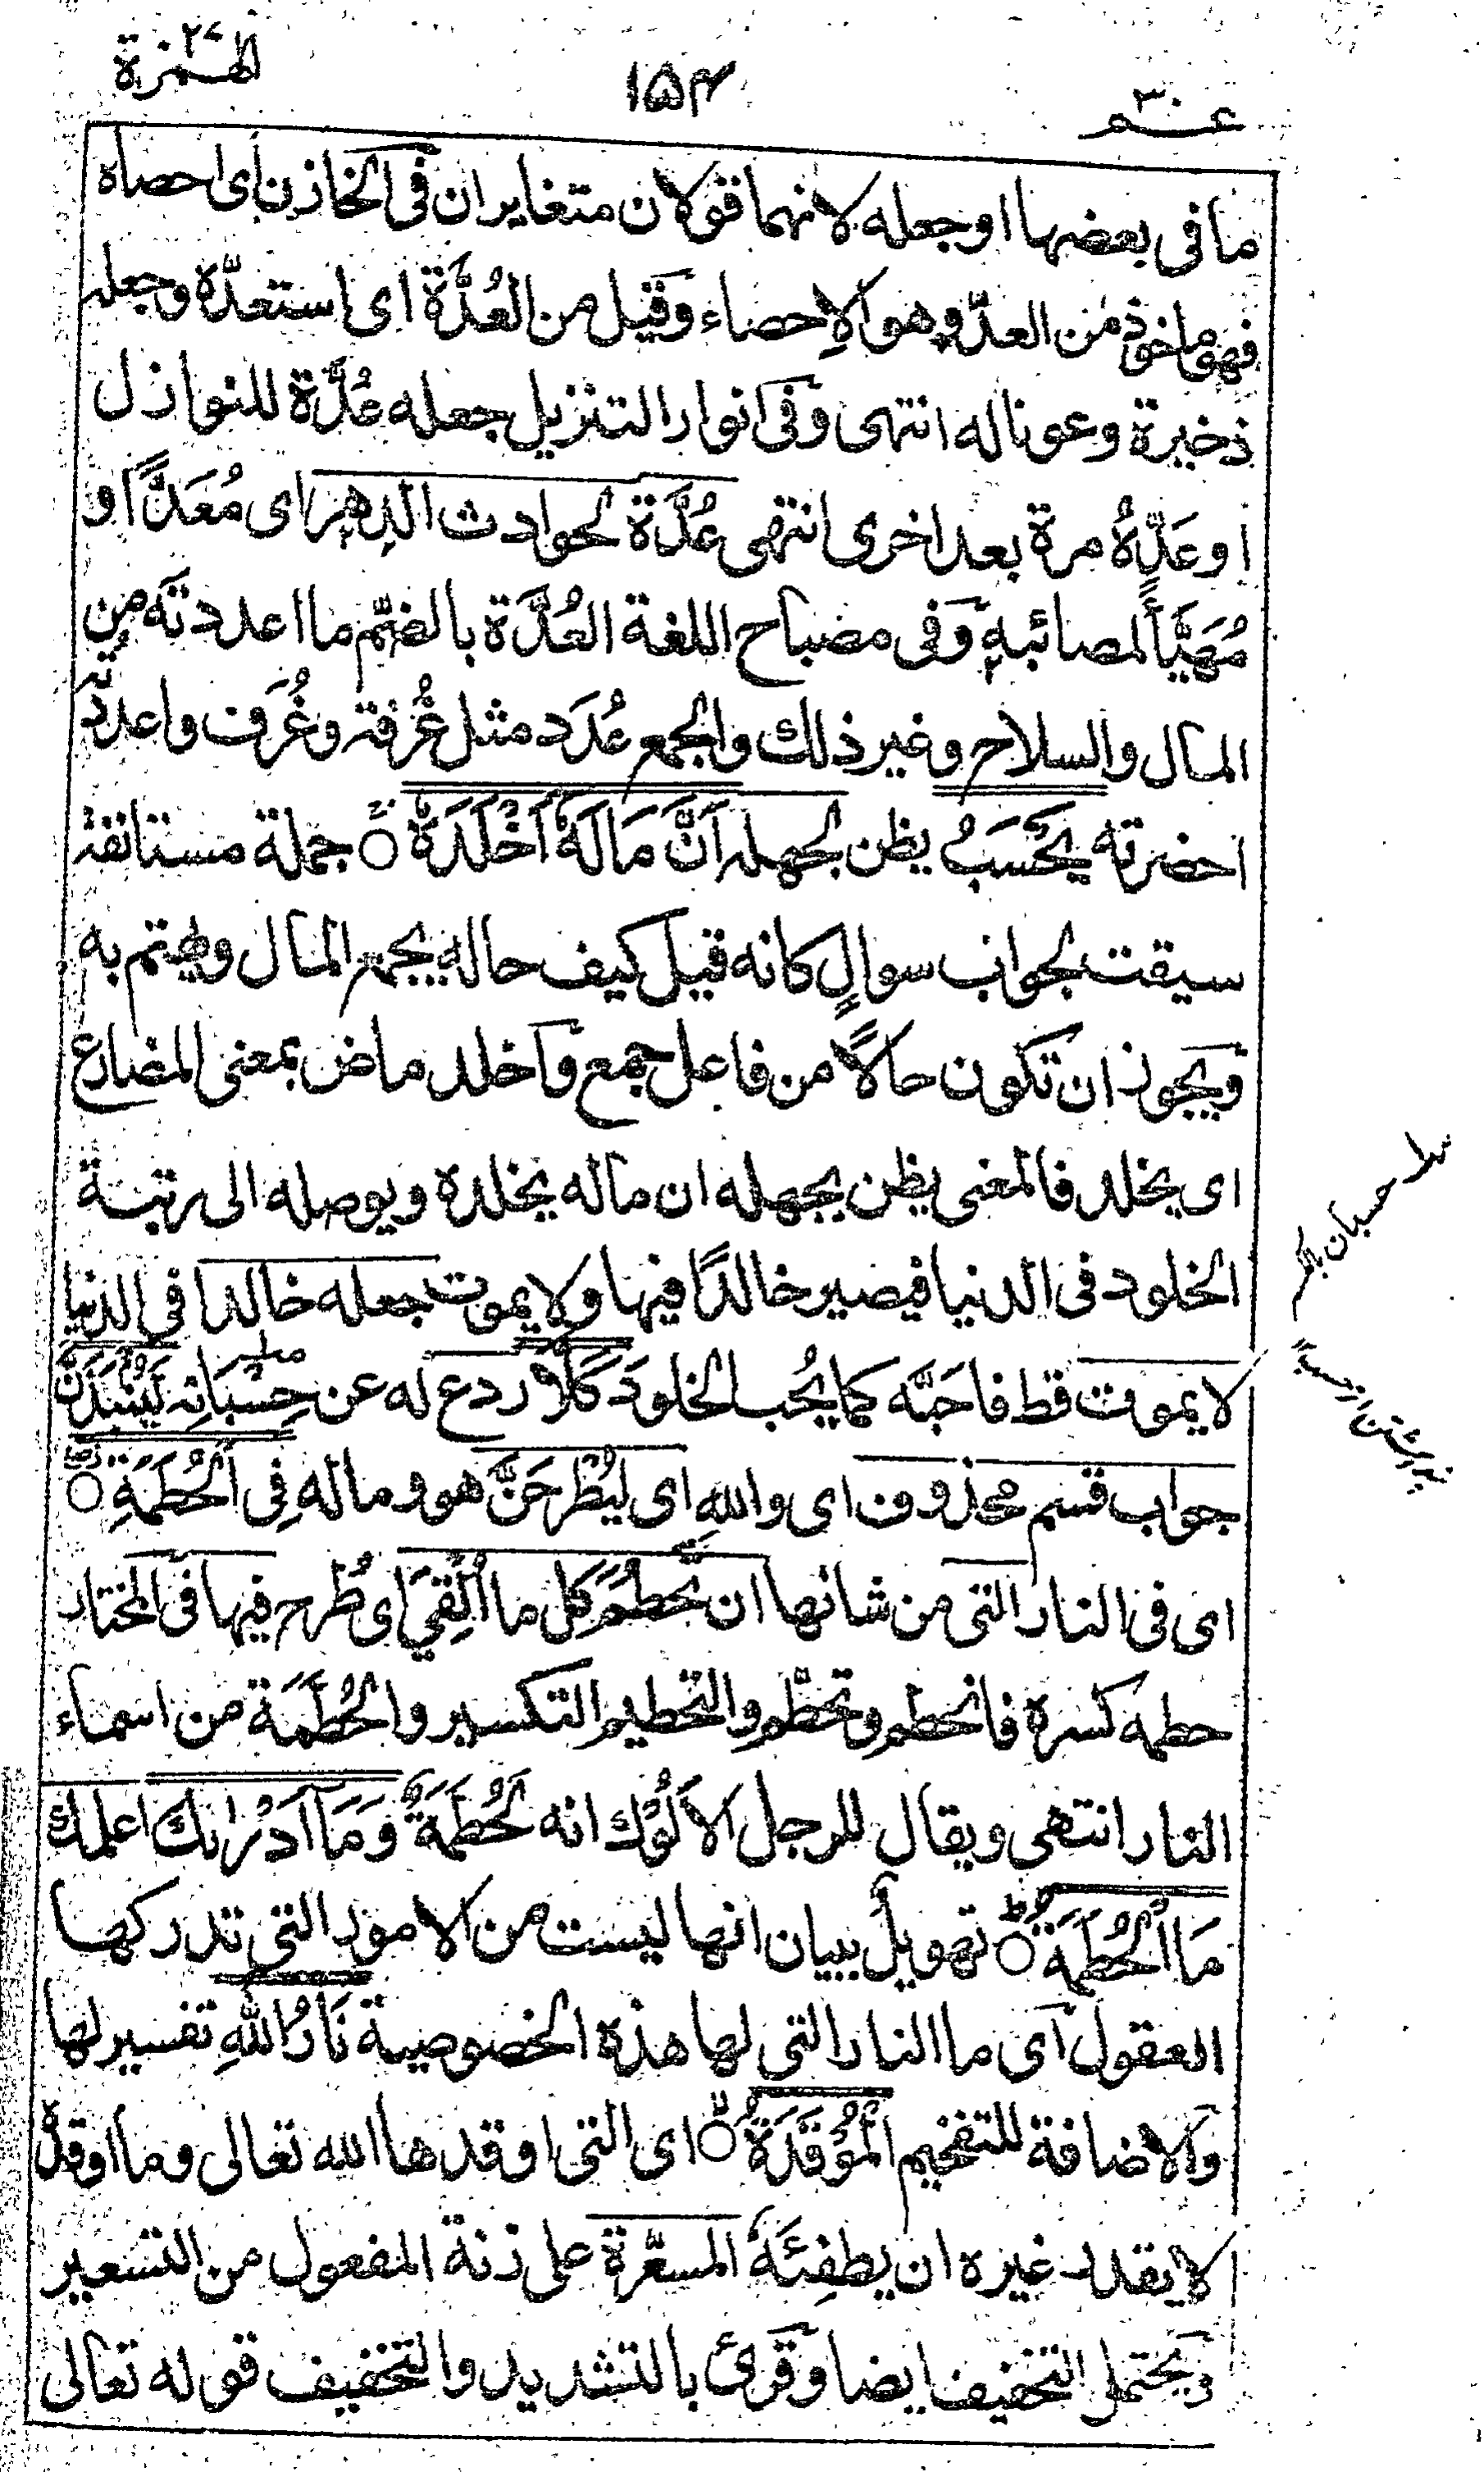 عــم ٣٠
١٥٤
الهمزة
ما في بعضها او جعله لانهما قولان متغايران في الخازن اى احصاه
فهو ماخوذ من العدّ وهو الاِحصاء وقيل من العُدَّة اى استعدّه وجعله
ذخيرة وعونا له انتهى وفى انوار التنزيل جعله عُدَّة للنوازل
او عَدَّهُ مرة بعد اخرى انتهى عُدَّة لحوادث الدهر اى مُعَدًّا او
مُهَيَّأً لمصائبه وفى مصباح اللغة العُدَّة بالضّم ما اعددته من
المال والسلاح وغير ذلك والجمع عُدَد مثل غُرفة وغُرَف واعددته
احضرته يَحْسَبُ يظن لجهله اَنَّ مَالَهٗ اَخْلَدَهٗ ○ جملة مستانفة
سيقت لجواب سوالٍ كانه قيل كيف حاله يجمع المال ويهتم به
ويجوز ان تكون حالًا من فاعل جمع واخلد ماض بمعنى المضارع
اى يخلد فالمعنى يظن بجهله ان ماله يخلده ويوصله الى رتبة
الخلود فى الدنيا فيصير خالدًا فيها ولا يموت جعله خالدا فى الدنيا
لا يموت قط فاحَبَّه كما يُحب الخلودَ كَلَّا ردع له عن حِسْبَانِه لَيُنْبَذَنَّ
جواب قسم محذوف اى والله اى ليُطْرَحَنَّ هو وماله فِى الْحُطَمَةِ ○
اى فى النار التى من شانها ان تَحطم كل ما اُلْقِيَ اى طُرح فيها فى المختار
حطمه كسره فانحطم وتحطّم والتحطيم التكسير والحُطَمَة من اسماء
النار انتهى ويقال للرجل الاَكُوْل انه لَحُطَمَةٌ وَمَا اَدْرٰىكَ اعلمك
مَا الْحُطَمَةُ ○ تهويل ببيان انها ليست من الامور التى تدركها
العقول اى ما النار التى لها هذه الخصوصية نَارُ اللهِ تفسير لها
والاضافة للتفخيم الْمُوْقَدَةُ ○ اى التى اوقدها الله تعالى وما اوقده
لا يقدر غيره ان يطفِئَهٗ المسعّرة على زنة المفعول من التسعير
ويحتمل التخفيف ايضا وقرئ بالتشديد والتخفيف قوله تعالى
حسبان بالكسر